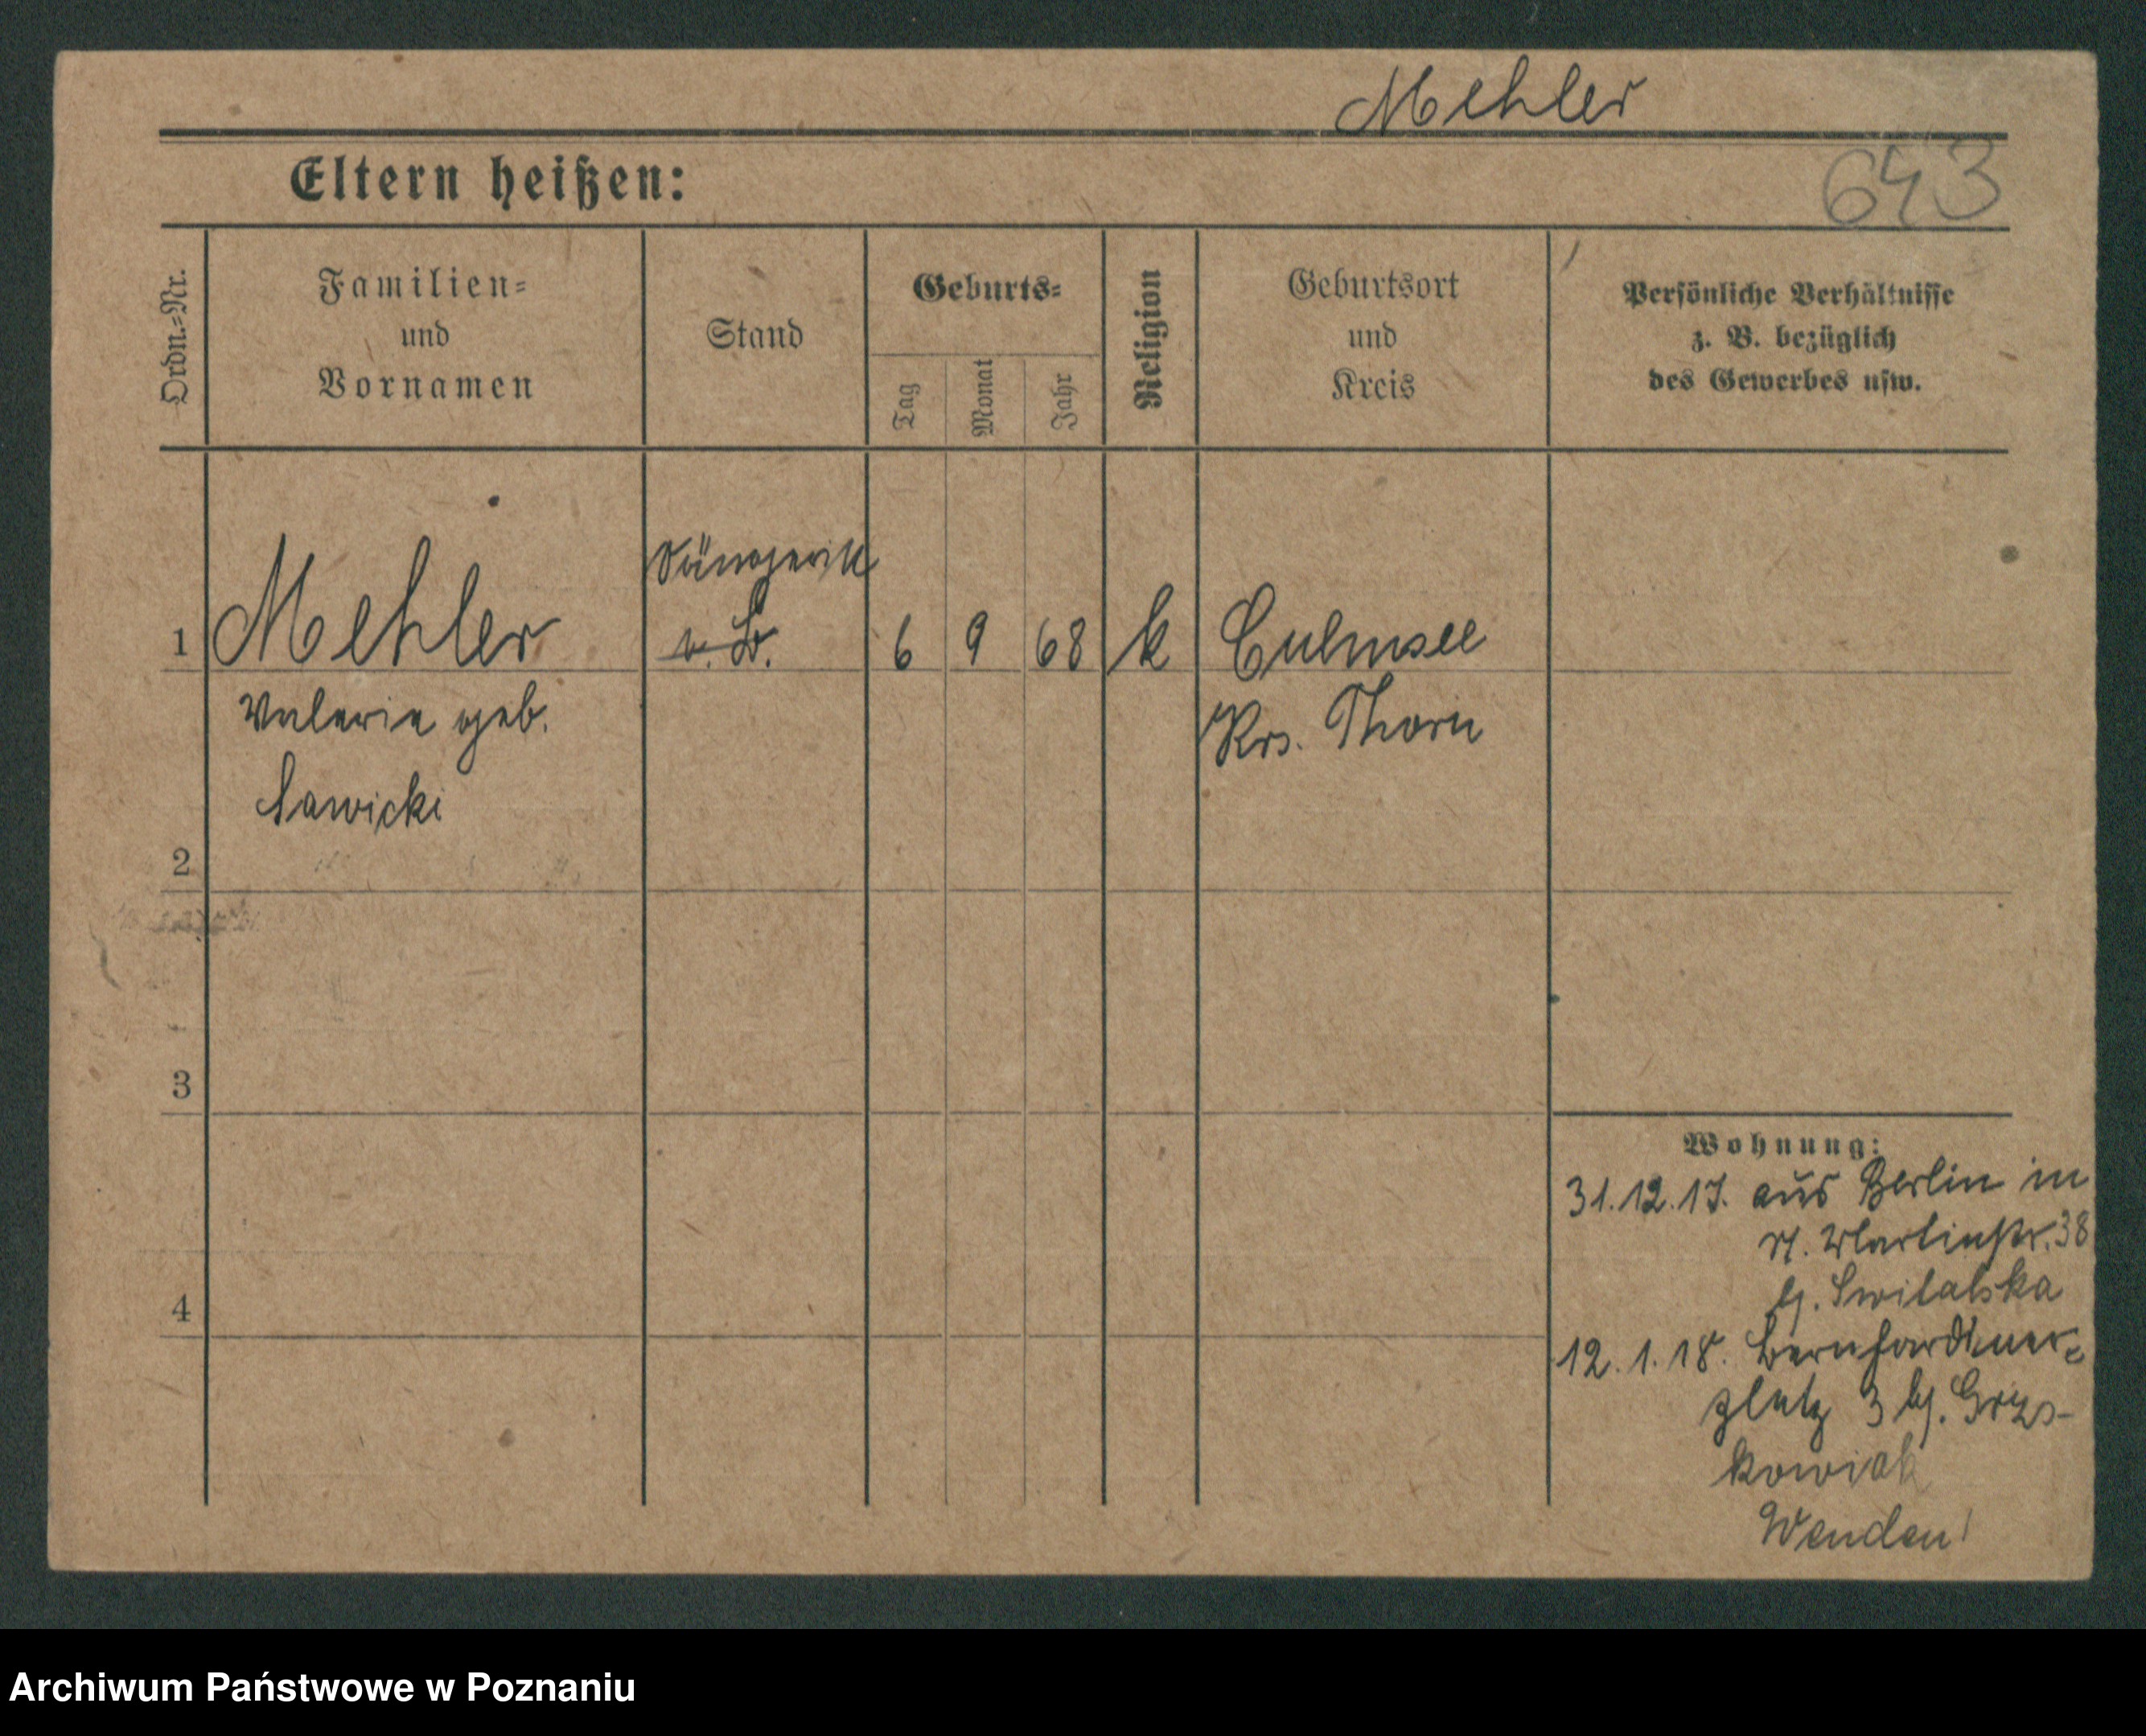 Mehler
Eltern heißen:
643
Ordn.=Nr.
Familien=
und
Vornamen
Stand
Geburts=
Tag
Monat
Jahr
Religion
Geburtsort
und
Kreis
Persönliche Verhältnisse
z. B. bezüglich
des Gewerbes usw.
Sängerin
1 Mehler 6 9 68 k Culmsee
Valerie geb. Krs. Thorn
Sawicki
2
3
4
Wohnung:
31.12.17. aus Berlin in
Martinstr. 38
b. Switalska
12.1.18. Bernhardiner=
platz 3 b. Grzs-
kowiak
Wenden!
Archiwum Państwowe w Poznaniu